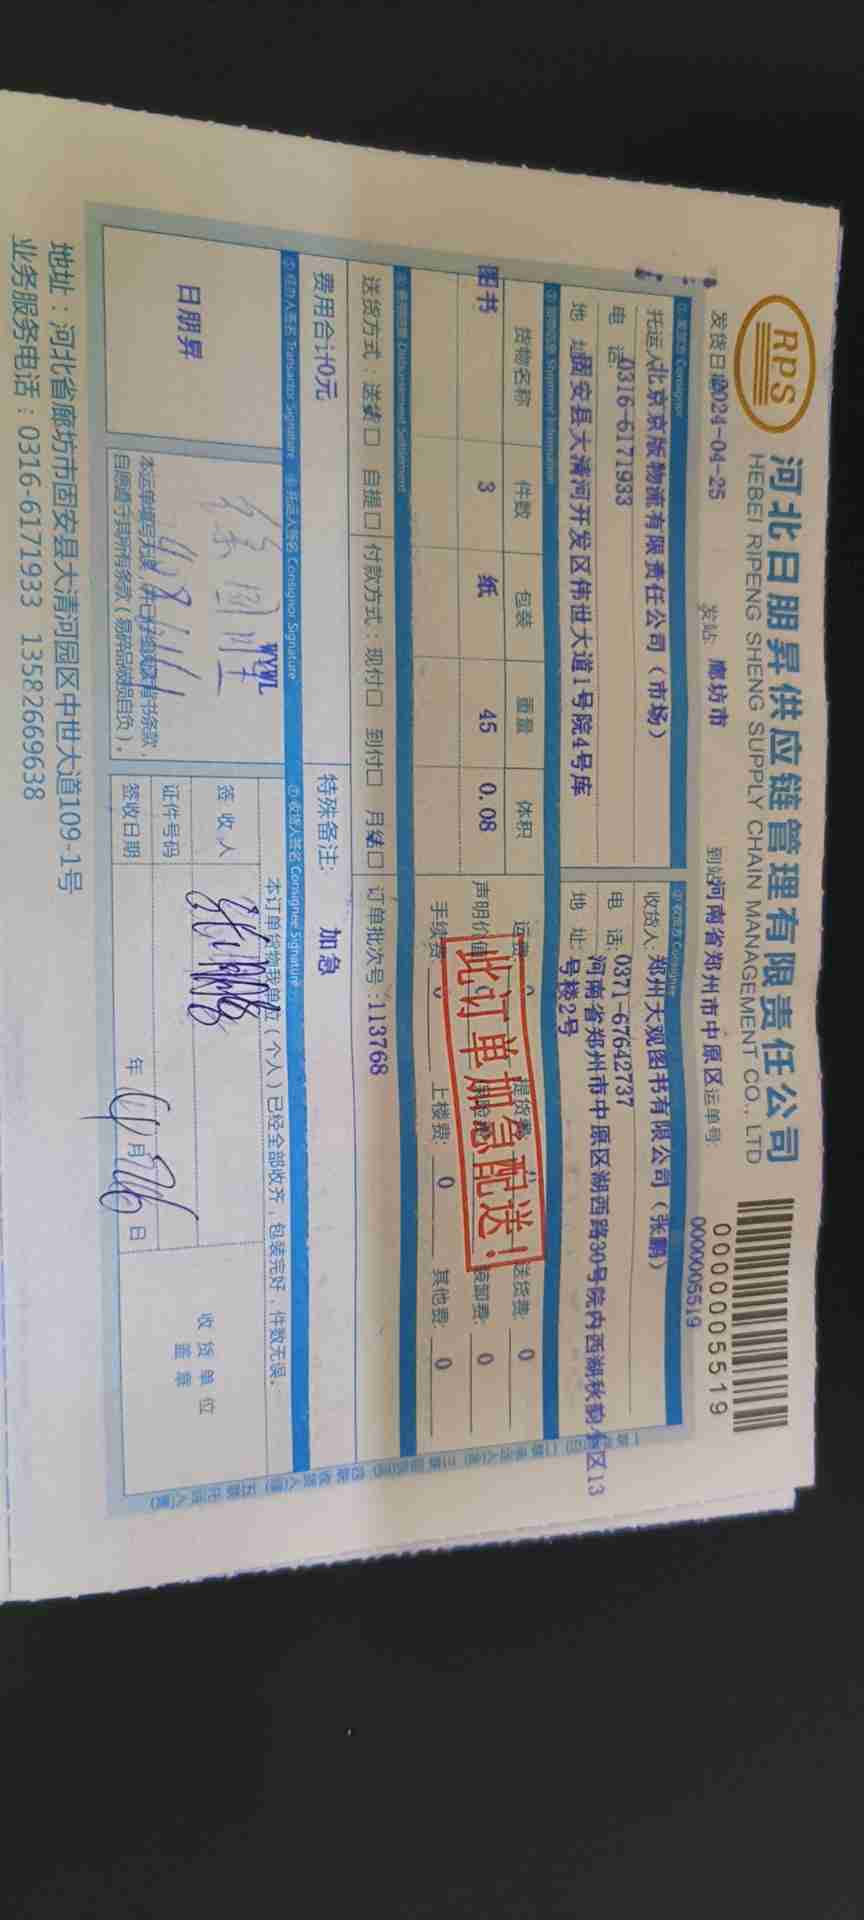 RPS
河北日朋昇供应链管理有限责任公司
HEBEI RIPENG SHENG SUPPLY CHAIN MANAGEMENT CO., LTD
0000005519
发货日期2024-04-25 发站: 廊坊市 到站河南省郑州市中原区 运单号: 0000005519
① 发货方 Consignor ② 收货方 Consignee
托运人北京京版物流有限责任公司（市场） 收货人: 郑州大观图书有限公司（张鹏）
电 话: 0316-6171933 电 话: 0371-67642737
地 址固安县大清河开发区伟世大道1号院4号库 地 址: 河南省郑州市中原区湖西路30号院内西湖秋韵小区13
号楼2号
Shipment Information
货物名称 件数 包装 重量 体积 运费 0 提货费 送货费: 0
图书 3 纸 45 0.08 声明价值 0 保险费 装卸费: 0
手续费 0 上楼费: 0 其他费: 0
此订单加急配送！
Disbursement Settlement
送货方式: 送货口 自提口 付款方式: 现付口 到付口 月结口 订单批次号:113768
费用合计0元 特殊备注: 加急
Transactor Signature ⑥ 托运人签名 Consignor Signature ⑦ 收货人签名 Consignee Signature
本订单货物我单位（个人）已经全部收齐，包装完好，件数无误。
日朋昇
WYWL
签 收 人
证件号码
签收日期 年 4 月 26 日
收货单位
盖章
地址：河北省廊坊市固安县大清河园区中世大道109-1号
业务服务电话：0316-6171933 13582669638